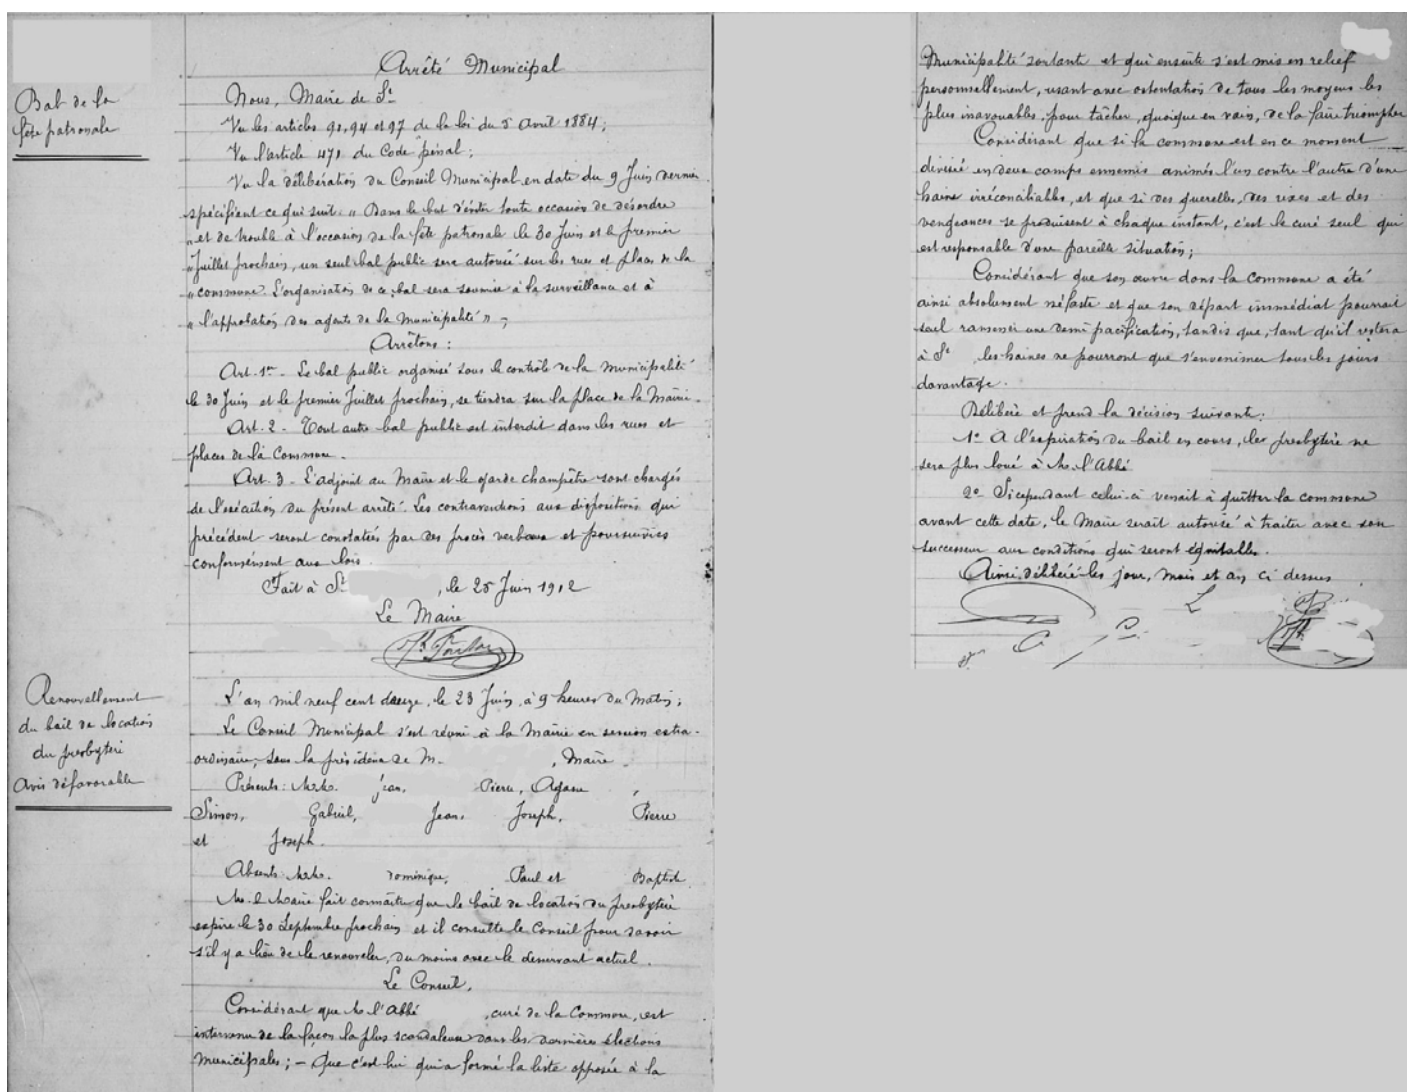 Bal de la
fête patronale
Arrêté Municipal
Nous, Maire de St
Vu les articles 91, 94 et 97 de la loi du 5 Avril 1884;
Vu l'article 471 du Code pénal;
Vu la délibération du Conseil Municipal en date du 9 Juin dernier
spécifient ce qui suit: " Dans le but d'éviter toute occasion de désordre
" et de trouble à l'occasion de la fête patronale le 30 Juin et le premier
" Juillet prochain, un seul bal public sera autorisé sur les rues et places de la
" commune. L'organisation de ce bal sera soumise à la surveillance et à
" l'approbation des agents de la Municipalité " ;
Arrêtons :
Art. 1er - Le bal public organisé sous le contrôle de la Municipalité
le 30 Juin et le premier Juillet prochain, se tiendra sur la place de la Mairie.
Art. 2 - Tout autre bal public est interdit dans les rues et
places de la Commune.
Art. 3 - L'adjoint au Maire et le garde champêtre sont chargés
de l'exécution du présent arrêté. Les contraventions aux dispositions qui
précèdent seront constatées par des procès verbaux et poursuivies
conformément aux lois.
Fait à St , le 25 Juin 1912
Le Maire
Renouvellement
du bail de location
du presbytère
Avis défavorable
L'an mil neuf cent douze, le 23 Juin, à 9 heures du Matin;
Le Conseil Municipal s'est réuni à la Mairie en session extra-
ordinaire, sous la présidence de M. , Maire.
Présents: MM. Jean, Pierre, ,
Simon, Gabriel, Jean, Joseph, Pierre
et Joseph.
Absents: MM. Dominique, Paul et Baptiste.
M. le Maire fait connaître que le bail de location du presbytère
expire le 30 Septembre prochain et il consulte le Conseil pour savoir
s'il y a lieu de le renouveler, du moins avec le desservant actuel.
Le Conseil,
Considérant que M. l'Abbé , curé de la Commune, est
intervenu de la façon la plus scandaleuse dans les dernières élections
municipales; - Que c'est lui qui a formé la liste opposée à la
Municipalité sortante et qui ensuite s'est mis en relief
personnellement, usant avec ostentation de tous les moyens les
plus inavouables, pour tâcher, quoique en vain, de la faire triompher
Considérant que si la commune est en ce moment
divisée en deux camps ennemis animés l'un contre l'autre d'une
haine irréconciliables, et que si des querelles, des rixes et des
vengeances se produisent à chaque instant, c'est le curé seul qui
est responsable d'une pareille situation;
Considérant que son œuvre dans la commune a été
ainsi absolument néfaste et que son départ immédiat pourrait
seul ramener une demi pacification, tandis que, tant qu'il restera
à St les haines ne pourront que s'envenimer tous les jours
davantage.
Délibère et prend la décision suivante:
1° A l'expiration du bail en cours, le presbytère ne
sera plus loué à M. l'Abbé
2° - Si cependant celui-ci venait à quitter la commune
avant cette date, le Maire serait autorisé à traiter avec son
successeur aux conditions qui seront équitables.
Ainsi délibéré les jour, mois et an ci dessus